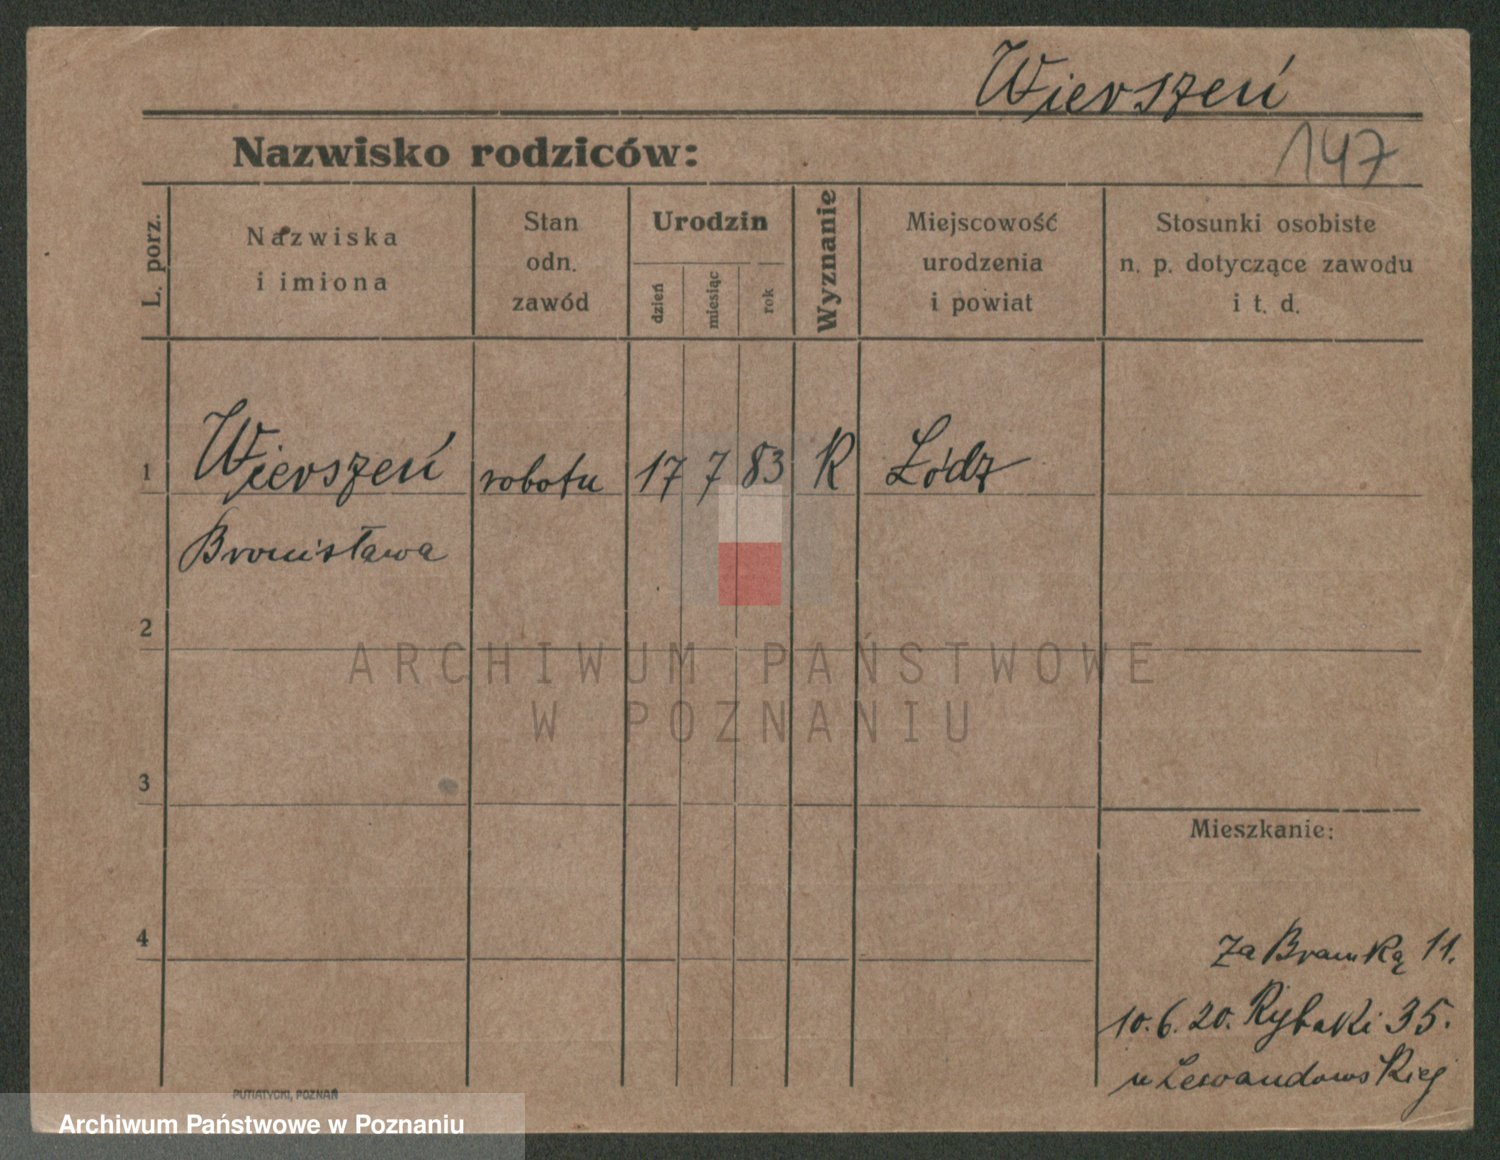 Wierszeń
147
Nazwisko rodziców:
L. porz.
Nazwiska
i imiona
Stan
odn.
zawód
Urodzin
dzień
miesiąc
rok
Wyznanie
Miejscowość
urodzenia
i powiat
Stosunki osobiste
n. p. dotyczące zawodu
i t. d.
1 Wierszeń robotn 17 7 83 R Łódz
Bronisława
2
ARCHIWUM PAŃSTWOWE
W POZNANIU
3
Mieszkanie:
4
Za Bramką 11.
10.6.20. Rybaki 35.
u Lewandowskiej
PUTIATYCKI, POZNAŃ
Archiwum Państwowe w Poznaniu